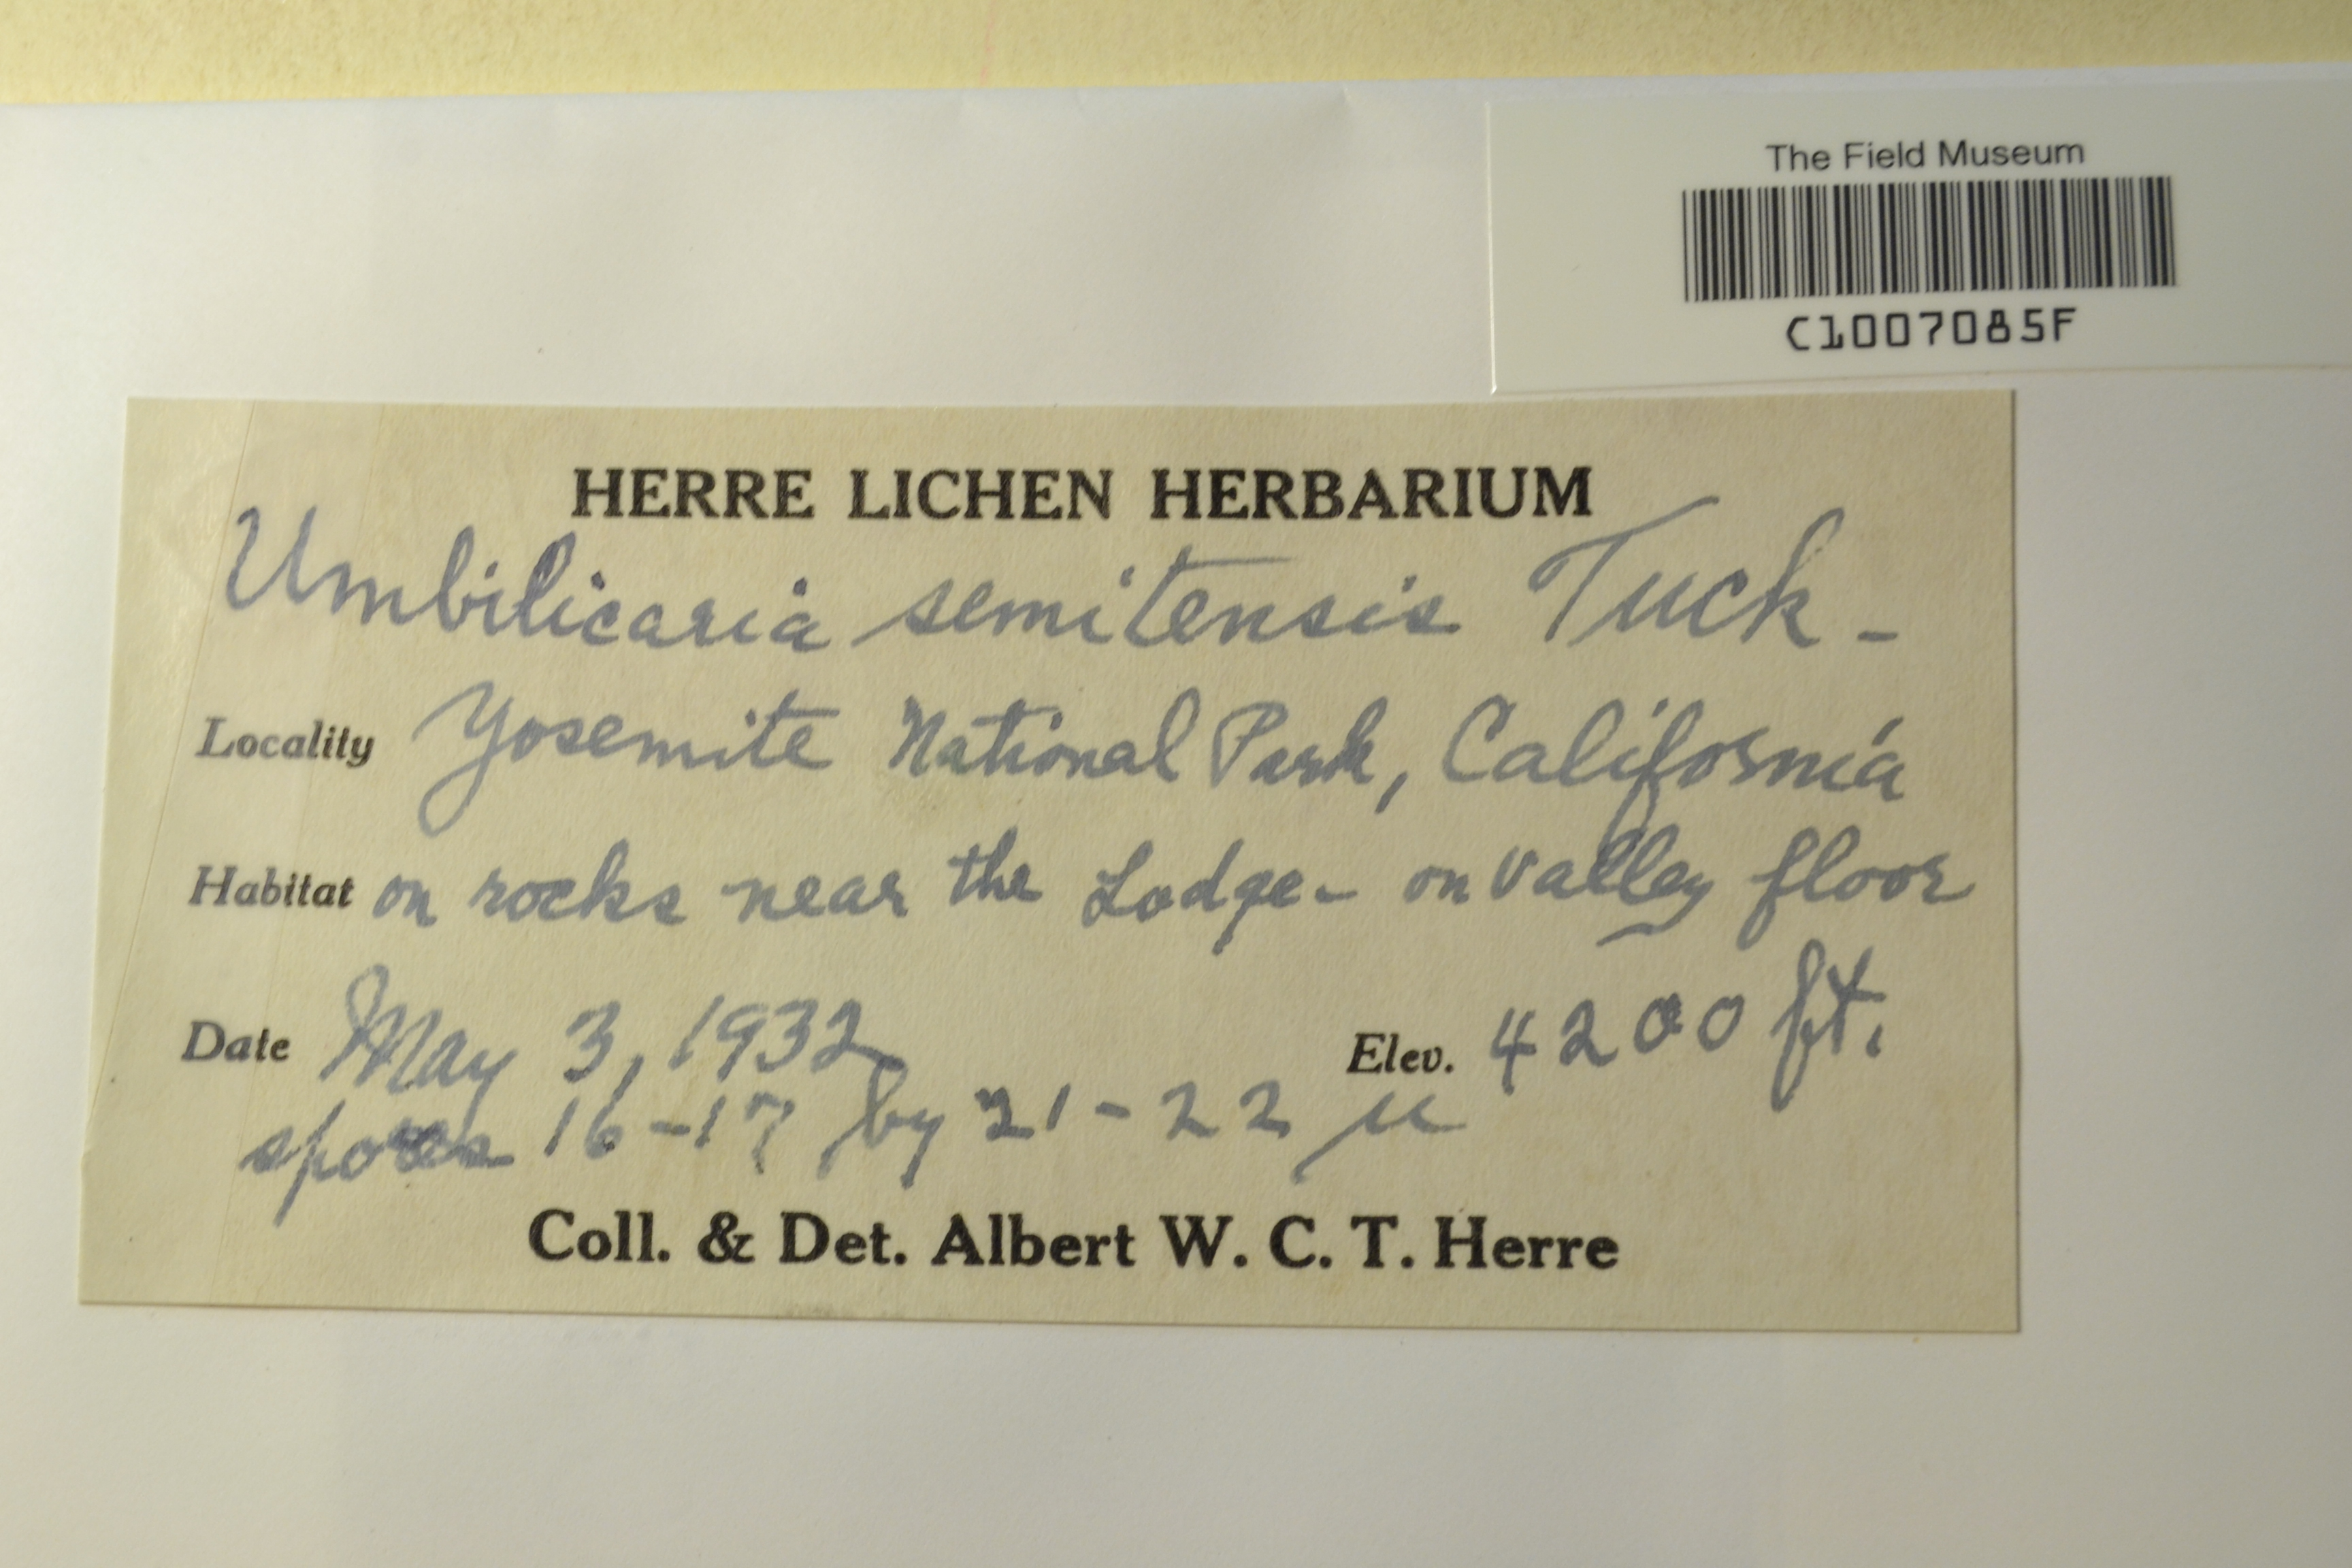 The Field Museum
C1007085F
HERRE LICHEN HERBARIUM
Umbilicaria semitensis Tuck-
Locality Yosemite National Park, California
Habitat on rocks near the Lodge- on valley floor
Date May 3, 1932 Elev. 4200 ft.
spores 16-17 by 21-22 µ
Coll. & Det. Albert W. C. T. Herre